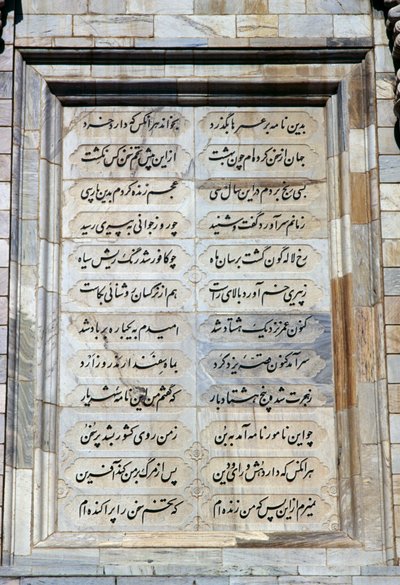 بدین نامه بر عمرها بگذرد بخواند هر آنکس که دارد خرد
جهان از سخن کرده ام چون بهشت از این پیش تخم سخن کس نکشت
بسی رنج بردم در این سال سی عجم زنده کردم بدین پارسی
زمانم سر آورد گفت و شنید چو روز جوانی به پیری رسید
رخ لاله گون گشت برسان کاه چو کافور شد رنگ ریش سیاه
ز پیری خم آورد بالای راست هم از نرگسان روشنائی بکاست
کنون عمر نزدیک هشتاد شد امیدم به یکباره بر باد شد
سر آمد کنون قصه یزدگرد بماه سفندارمذ روز ارد
ز هجرت شده پنج هشتاد بار که گفتم من این نامه شهریار
چو این نامور نامه آمد به بن ز من روی کشور شد پر سخن
هر آنکس که دارد هش و رای و دین پس از مرگ بر من کند آفرین
نمیرم از این پس که من زنده ام که تخم سخن را پراکنده ام